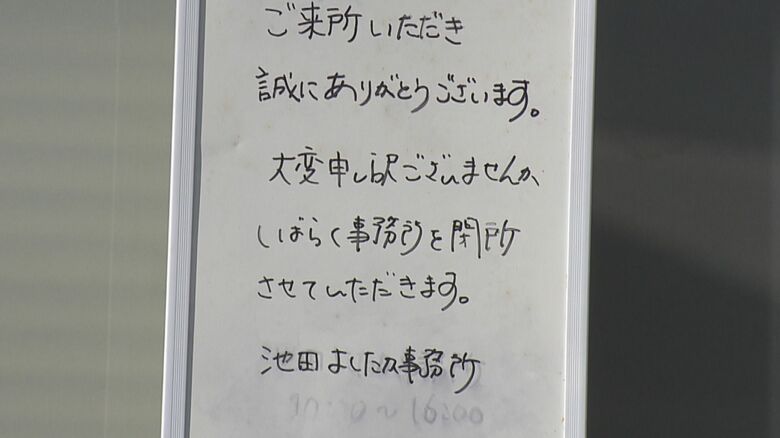 ご来所いただき
誠にありがとうございます。
大変申し訳ございませんが、
しばらく事務所を閉所
させていただきます。
池田よしたか事務所
10:00~16:00